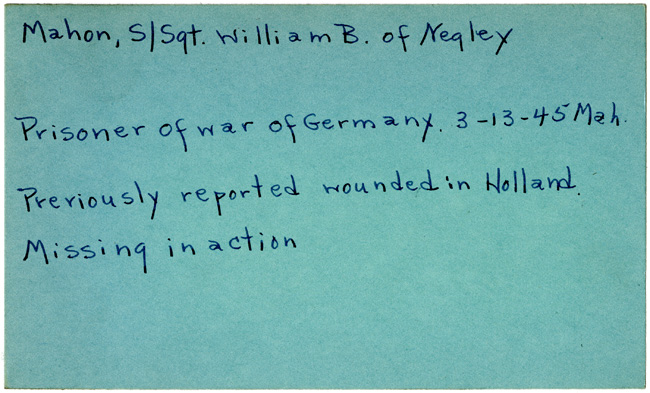 Mahon, S/Sgt. William B. of Negley
Prisoner of war of Germany. 3-13-45 Mah.
Previously reported wounded in Holland.
Missing in action